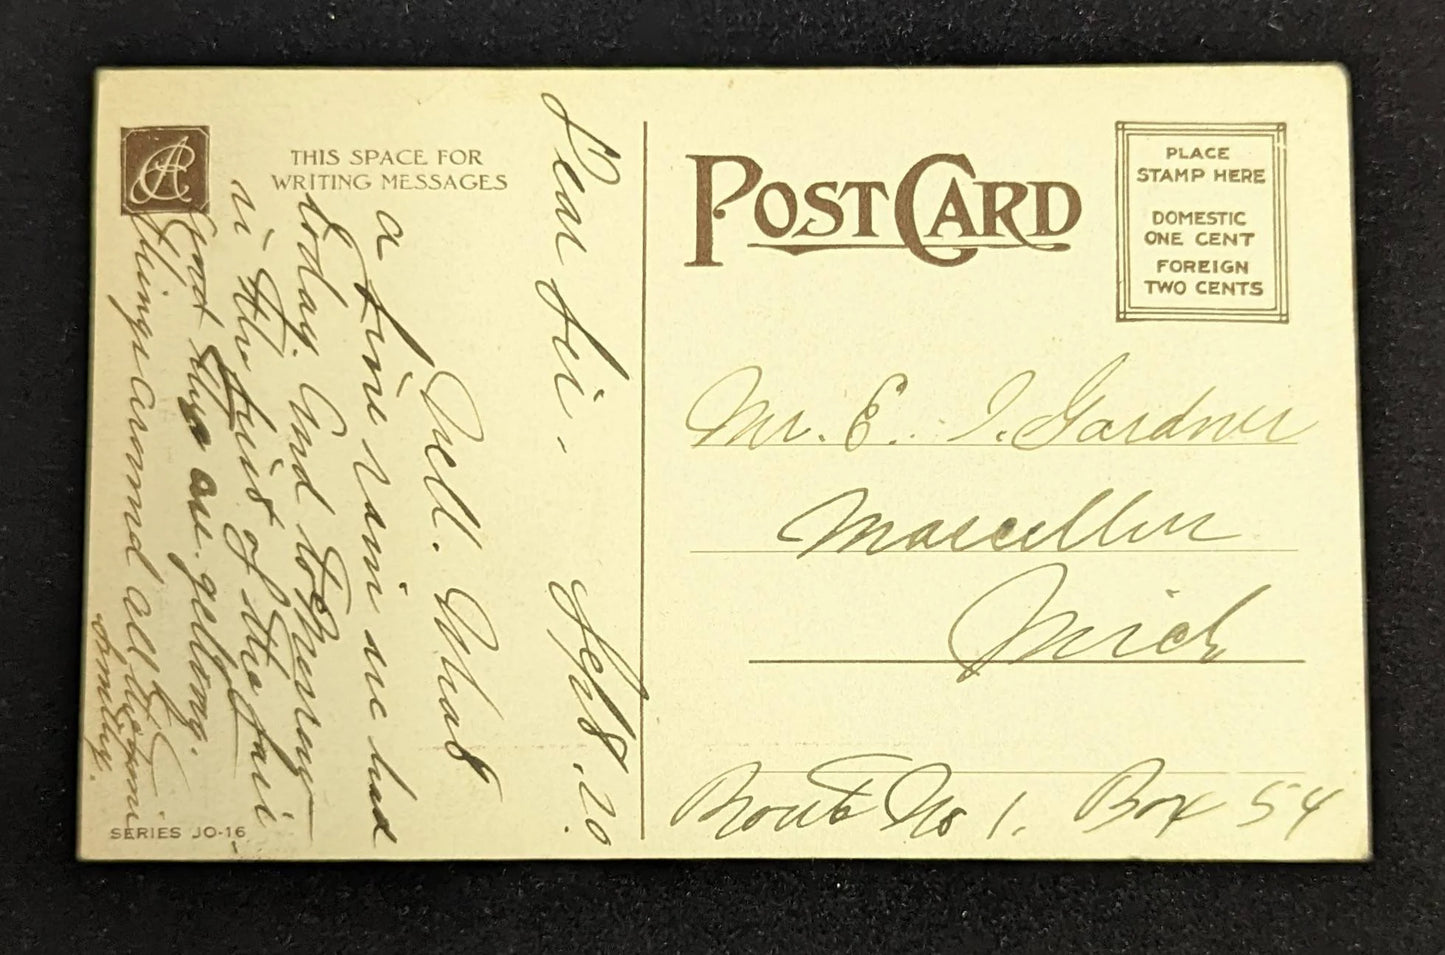 THIS SPACE FOR
WRITING MESSAGES
Dear Sir - Sept. 20.
Well. What
a fine rain we had
today. And tomorrow
is the first of the fair
and they are getting
things around all
SERIES JO-16
POST CARD
PLACE
STAMP HERE
DOMESTIC
ONE CENT
FOREIGN
TWO CENTS
Mr. E. I. Gardner
Marcellus
Mich
Route No 1. Box 54